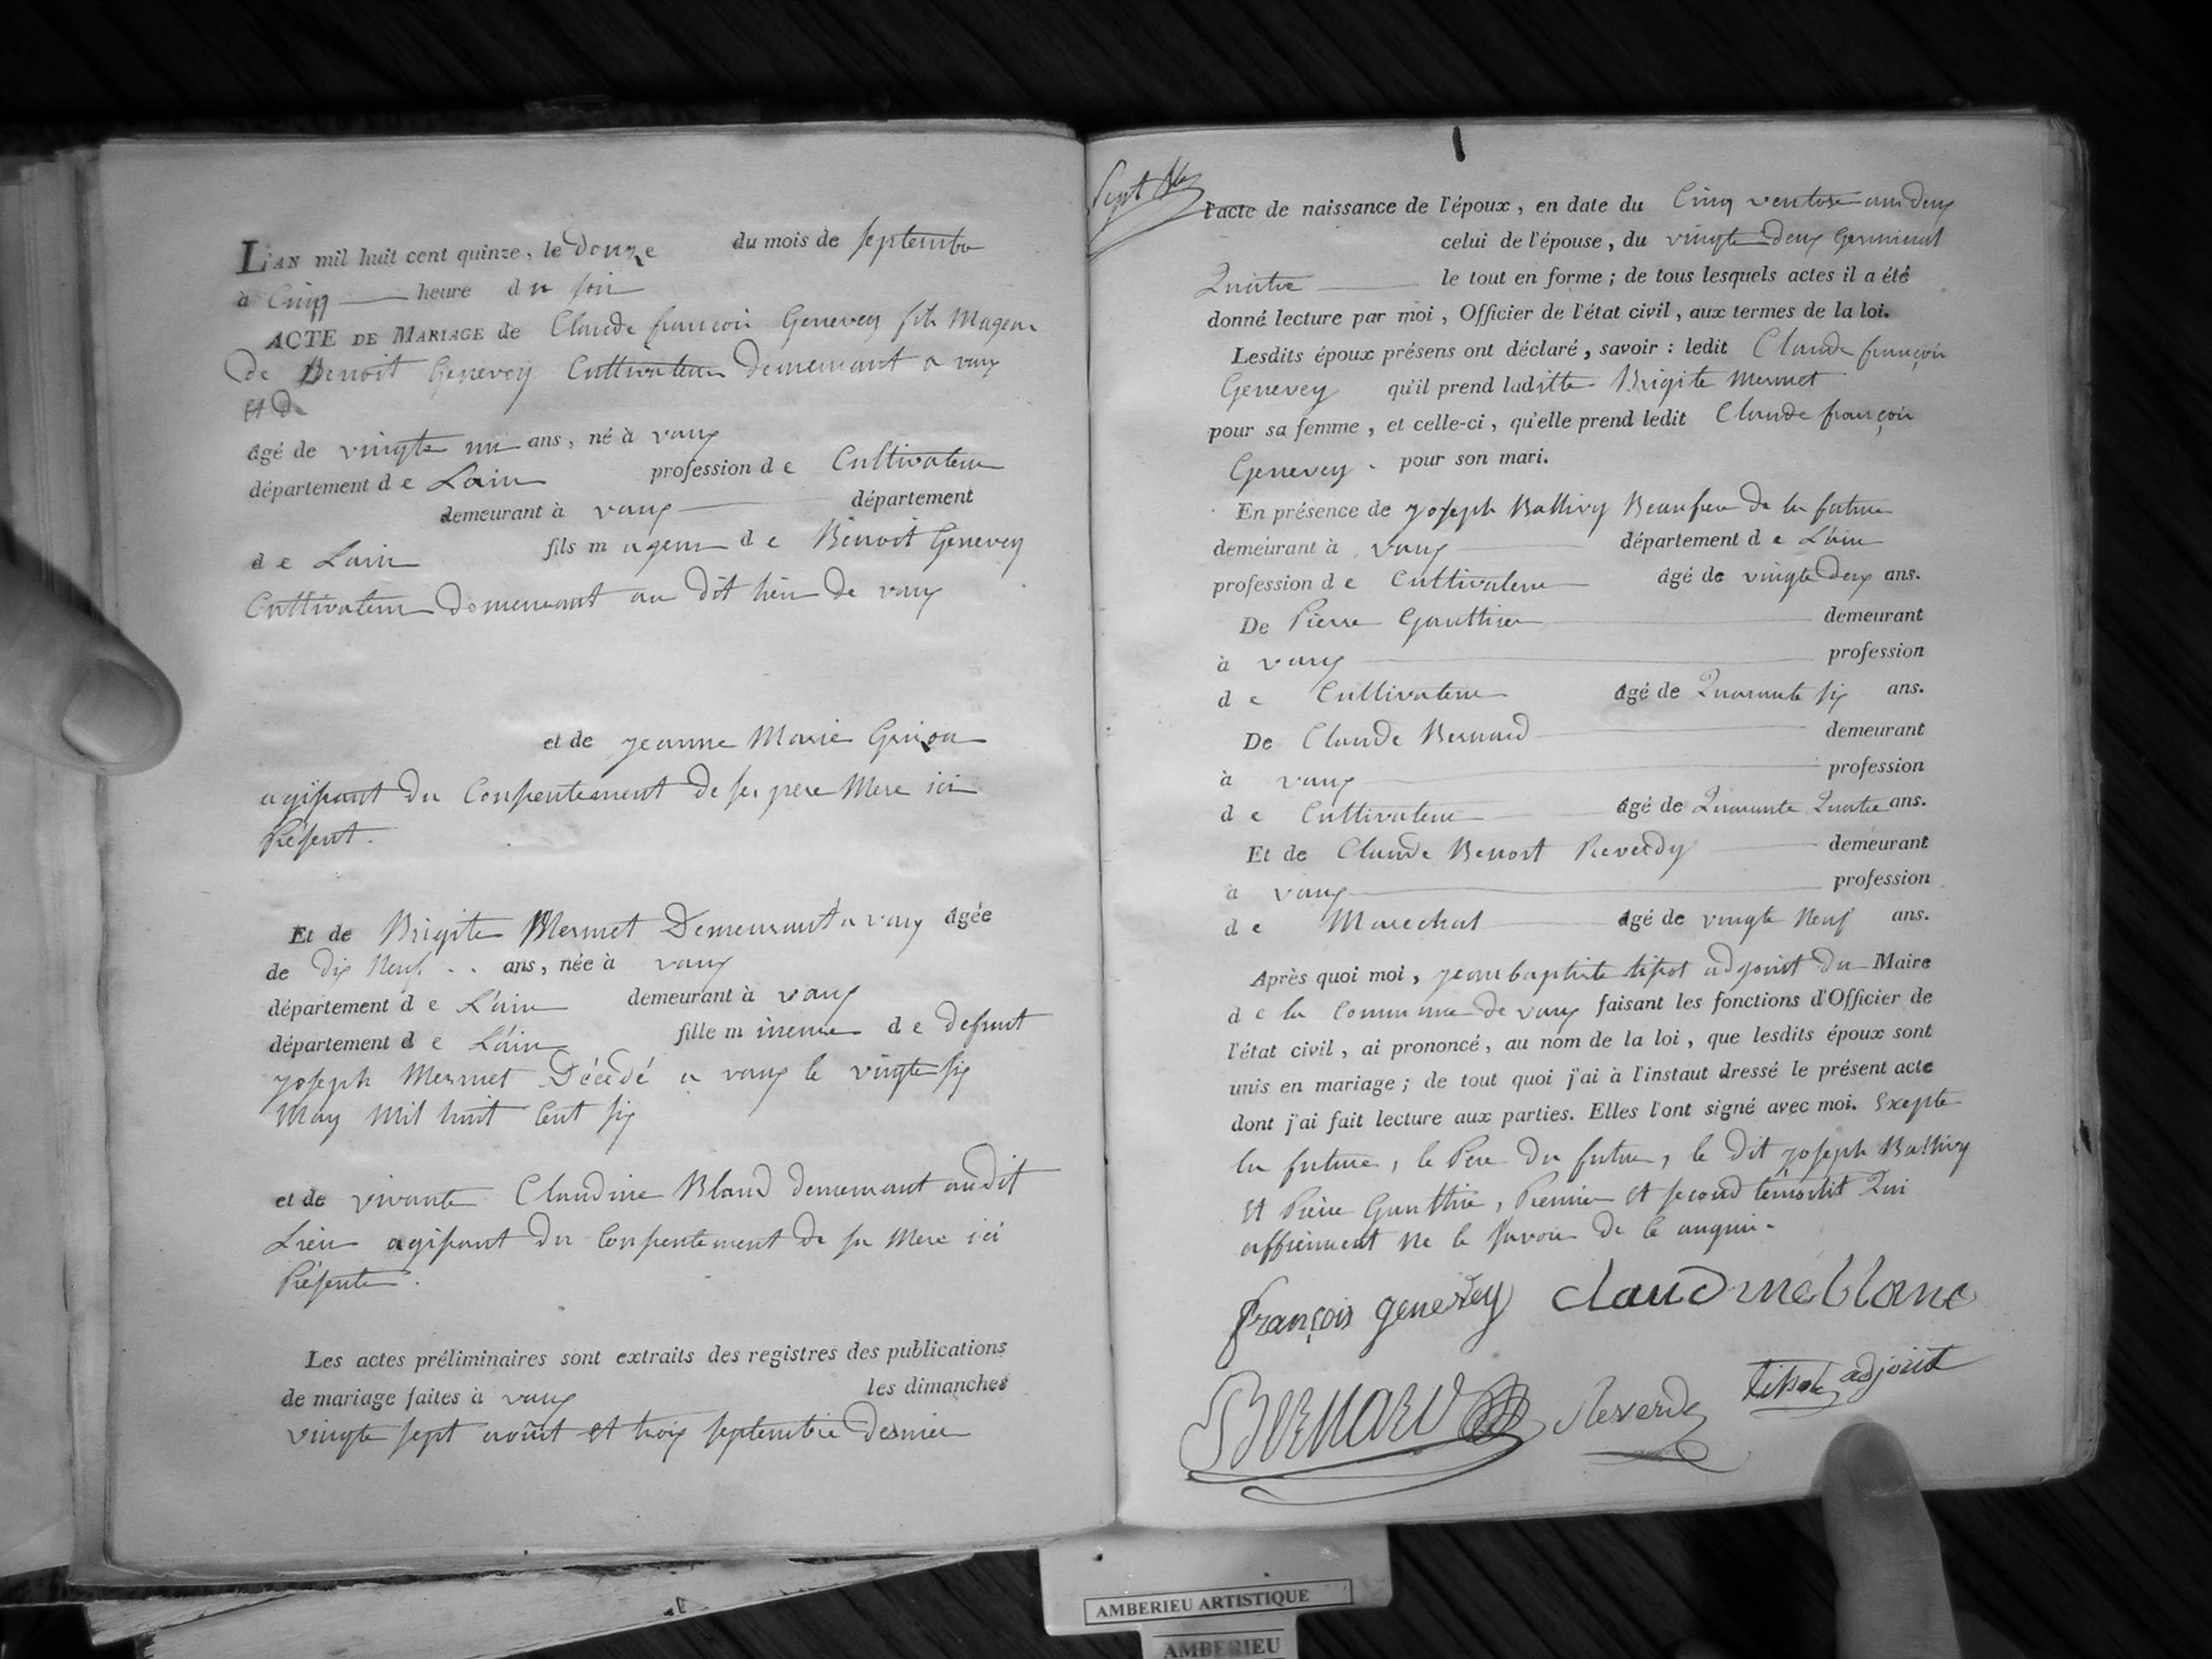 L'AN mil huit cent quinze, le douze du mois de septembre
à Cinq heure du soir
ACTE DE MARIAGE de Claude françois Genevey fils Mageur
de Benoit Genevey Cultivateur Demeurant a vaux
et De
âgé de vingte un ans, né à vaux
département de Lain profession de Cultivateur
demeurant à vaux département
de Lain fils mageur de Benoit Genevey
Cultivateur Demeurant au dit lieu de vaux
et de jeanne Marie
agissant du Consentement de ses pere Mere ici
Présent.
Et de Brigite Mermet Demeurant a vaux âgée
de dix Neuf .. ans, née à vaux
département de L'ain demeurant à vaux
département de L'ain fille mineure de defunt
joseph Mermet Décédé a vaux le vingte six
May Mil huit Cent six
et de vivante Claudine Bland demeurant audit
Lieu agissant du Consentement de sa Mere ici
Présente.
Les actes préliminaires sont extraits des registres des publications
de mariage faites à vaux les dimanches
vingte sept août et trois septembre dernier
Sept bre
l'acte de naissance de l'époux, en date du Cinq ventose an deux
celui de l'épouse, du vingte deux Germinal
Quatre le tout en forme; de tous lesquels actes il a été
donné lecture par moi, Officier de l'état civil, aux termes de la loi.
Lesdits époux présens ont déclaré, savoir: ledit Claude françois
Genevey qu'il prend laditte Brigite Mermet
pour sa femme, et celle-ci, qu'elle prend ledit Claude françois
Genevey . pour son mari.
En présence de joseph Ballivy Beaufrere De la future
demeurant à vaux département de L'ain
profession de Cultivateur âgé de vingte deux ans.
De Pierre Gauthier demeurant
à vaux profession
de Cultivateur âgé de Quarante six ans.
De Claude Bernard demeurant
à vaux profession
de Cultivateur âgé de Quarante Quatre ans.
Et de Claude Benoit Reverdy demeurant
à vaux profession
de Marechal âgé de vingte Neuf ans.
Après quoi moi, jean baptiste adjoint du Maire
de la Commune de vaux faisant les fonctions d'Officier de
l'état civil, ai prononcé, au nom de la loi, que lesdits époux sont
unis en mariage; de tout quoi j'ai à l'instaut dressé le présent acte
dont j'ai fait lecture aux parties. Elles l'ont signé avec moi. Exepte
la future, le Pere du futur, le dit joseph Ballivy
et Pierre Gauthier, Premier et second Qui
ont affirment Ne le savoir De ce
françois genevey claudineblanc
BERNARD Reverdy adjoint
AMBERIEU ARTISTIQUE
AMBERIEU